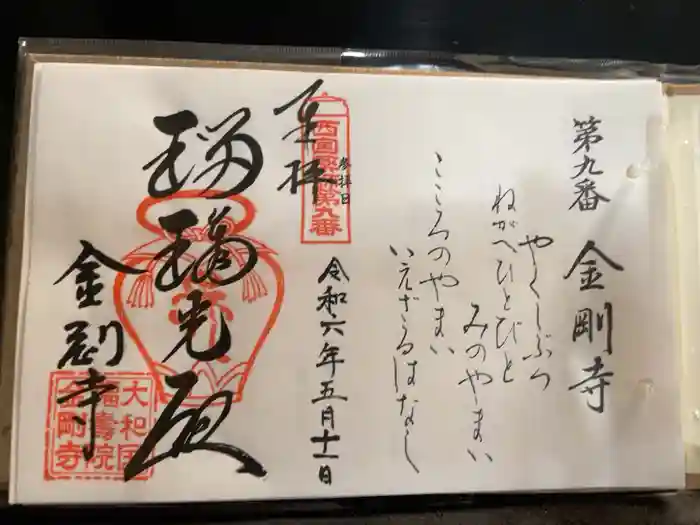 第九番 金剛寺
やくしぶつ
ねがへひとびと
みのやまい
こころのやまい
いえざるはなし
奉拝
参拝日
西国薬師第九番
令和六年五月十一日
瑠璃光殿
金剛寺
大和国
福壽院
金剛寺